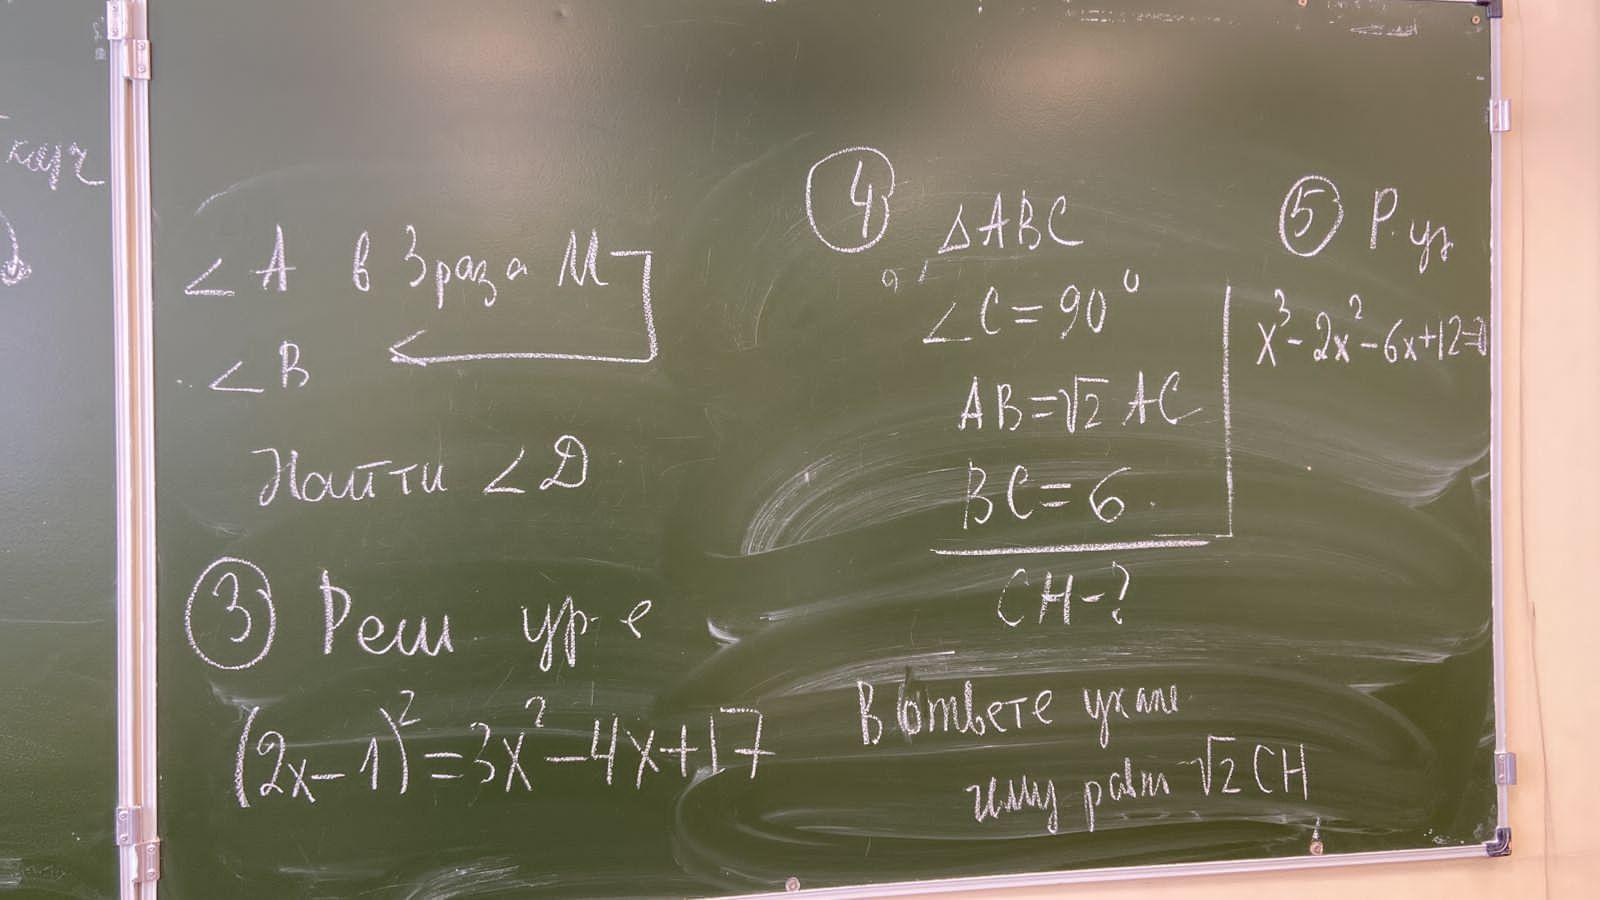 ∠A в 3 раза М
∠B
Найти ∠D
③ Реш ур-е
(2x-1)²=3x²-4x+17
④ △ABC
∠C=90°
AB=√2 AC
BC=6
CH-?
В ответе укаж
чему равн √2 CH
⑤ Р. ур
x³-2x²-6x+12=0